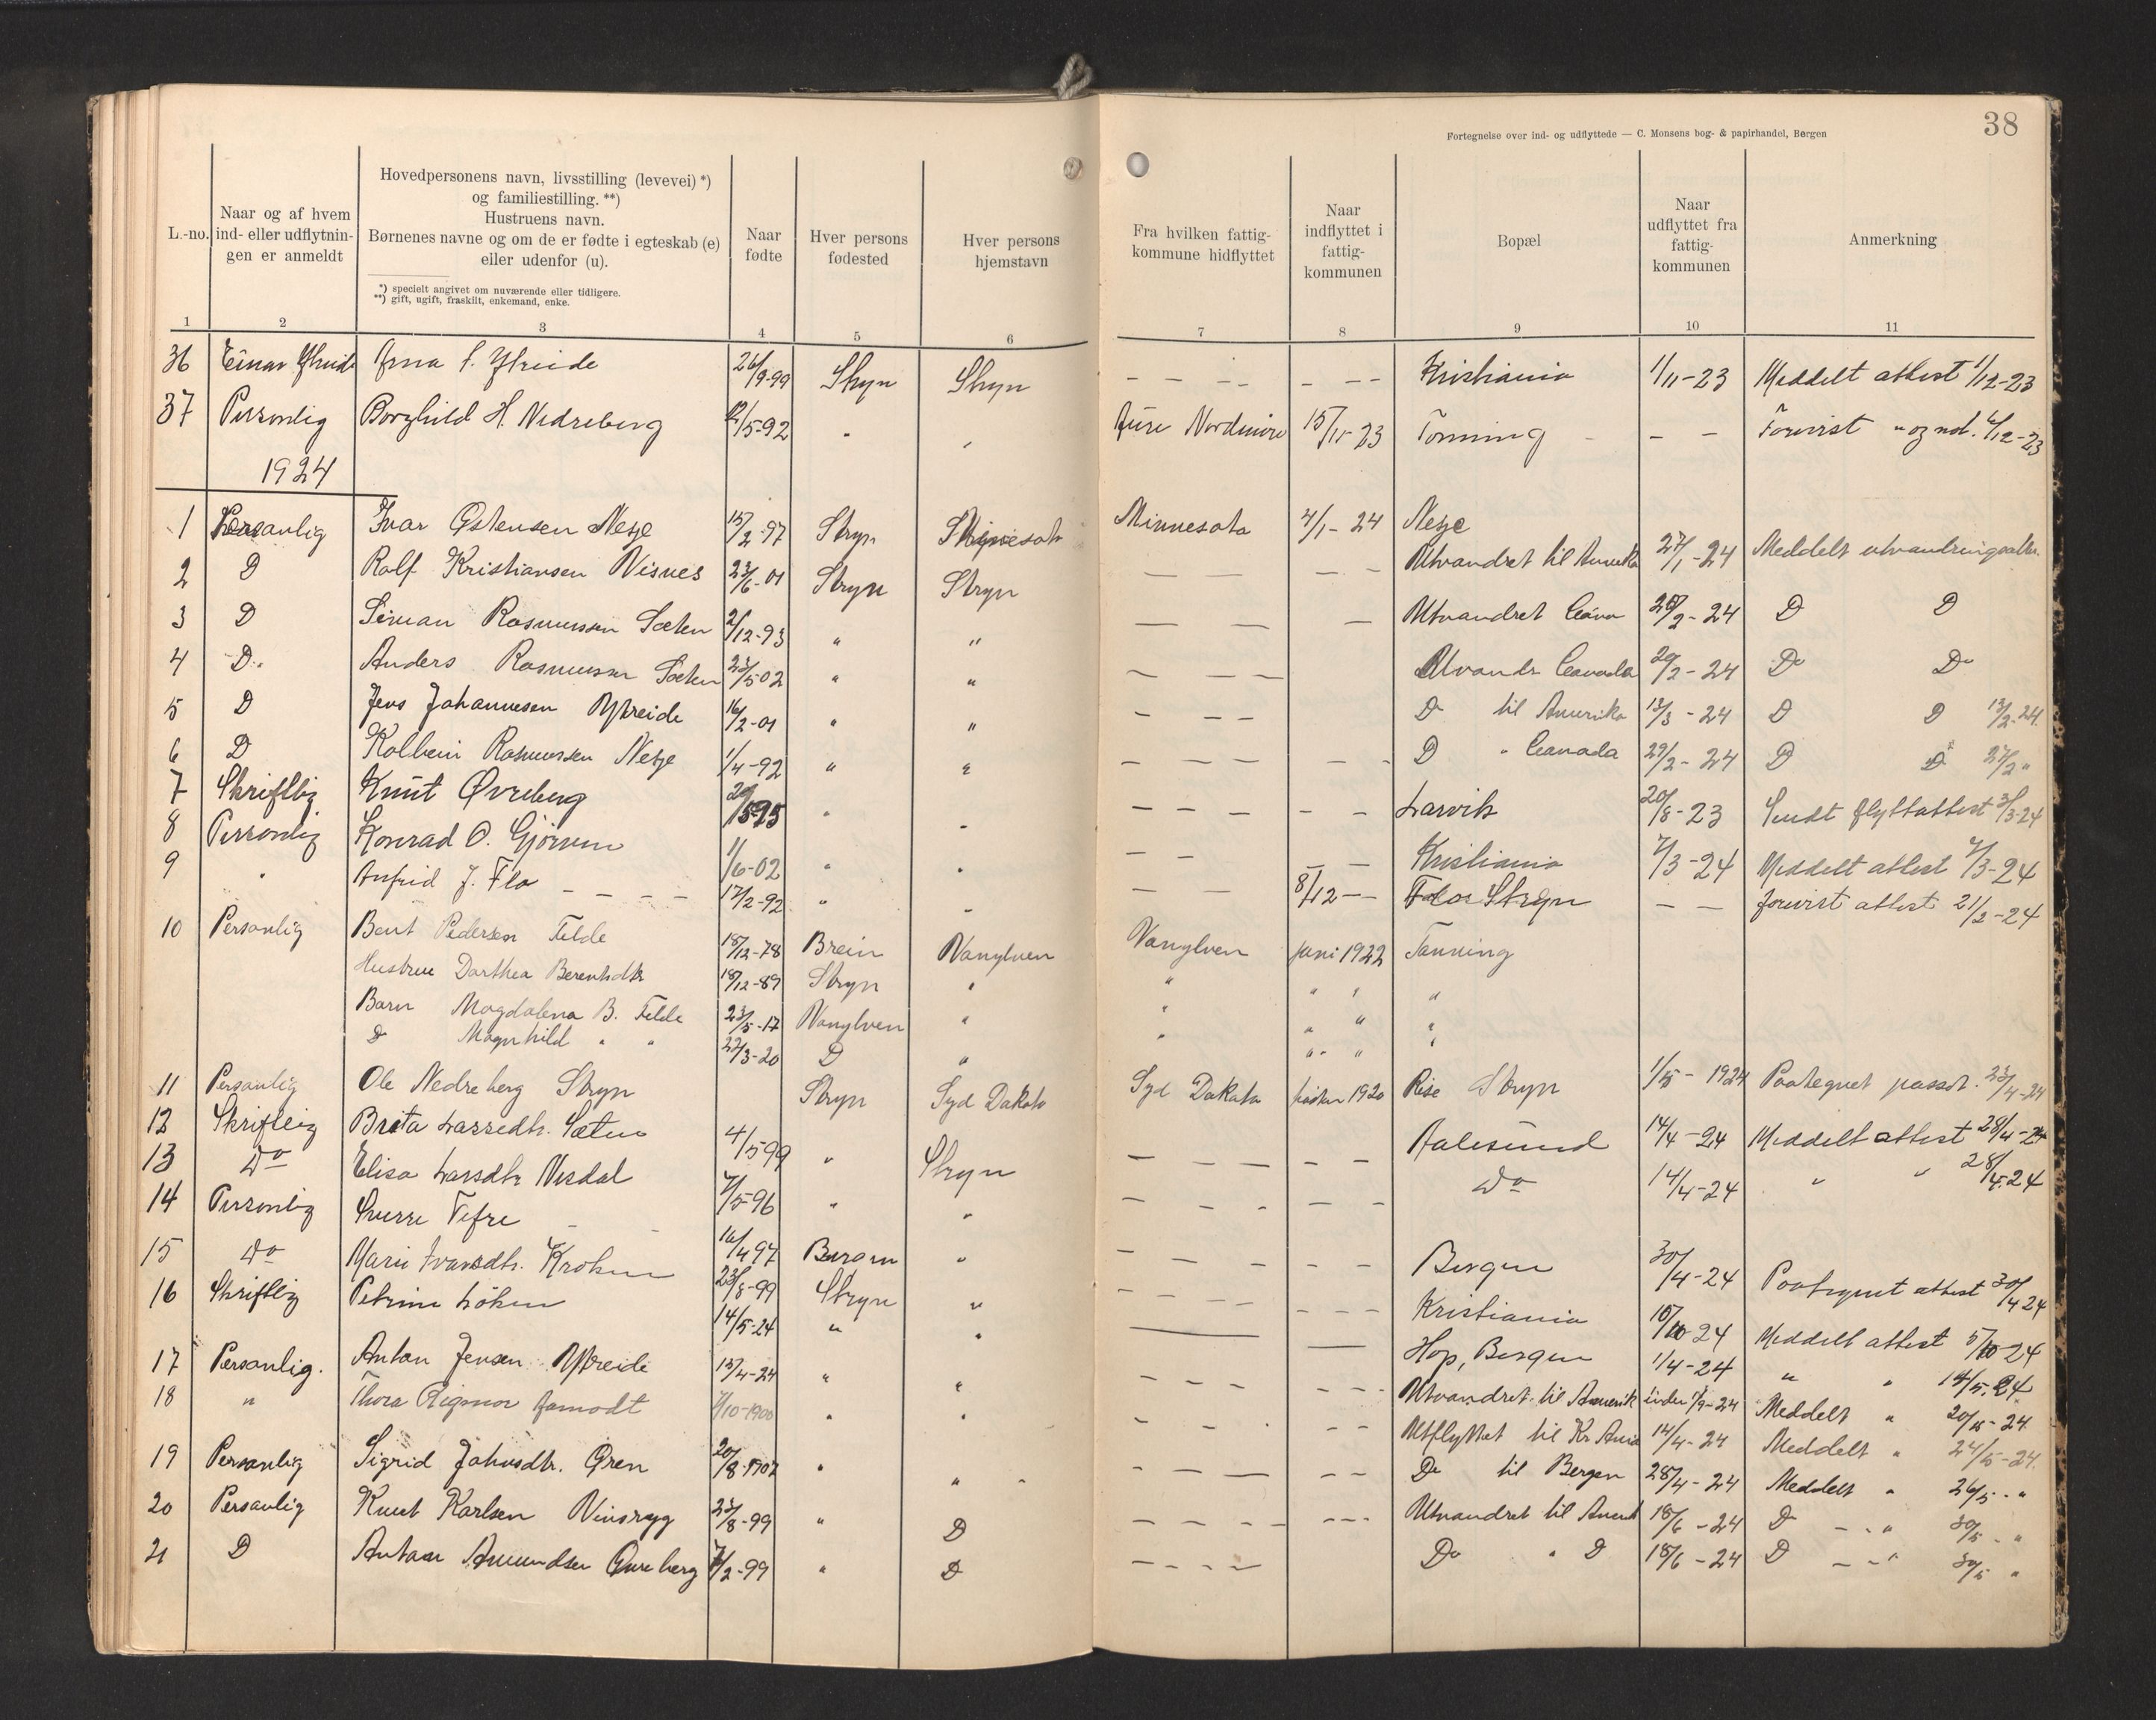 38
Fortegnelse over ind- og udflyttede — C. Monsens bog- & papirhandel, Bergen
L.-no.
Naar og af hvem
ind- eller udflytnin-
gen er anmeldt
Hovedpersonens navn, livsstilling (levevei) *)
og familiestilling. **)
Hustruens navn.
Børnenes navne og om de er fødte i egteskab (e)
eller udenfor (u).
*) specielt angivet om nuværende eller tidligere.
**) gift, ugift, fraskilt, enkemand, enke.
Naar
fødte
Hver persons
fødested
Hver persons
hjemstavn
Fra hvilken fattig-
kommune hidflyttet
Naar
indflyttet i
fattig-
kommunen
Bopæl
Naar
udflyttet fra
fattig-
kommunen
Anmerkning
1 2 3 4 5 6 7 8 9 10 11
36 Einar Ytreide Arna S. Ytreide 26/9-99 Stryn Stryn — — — — — — — Kristiania 1/11-23 Meddelt attest 1/12-23
37 Personlig Borghild H. Nedreberg 12/5-92 " " Aure Nordmøre 15/11-23 Tonning — — — Forevist " og not. 4/12-23
1924
1 Personlig Ivar Østensen Nesje 15/2-97 Stryn Minnesota 4/1-24 Nesje
2 D Rolf Kristiansen Visnes 23/6-01 Stryn Stryn — — — — Utvandret til Amerika 27/1-24 Meddelt utvandringsattes.
3 D Siman Rasmussen Sæten 2/12-93 " " — — — Utvandret 28/2-24 D D
4 D. Anders Rasmussen Sæten 23/5 02 " " — — — Utvandr Canada 29/2-24 Do Do
5 D Jens Johannesen Ytreide 16/2-01 " " — — — D til Amerika 13/3-24 D D 13/2-24.
6 D Kolbein Rasmussen Nesje 1/4-92 " " — — — — — D " Canada 29/2-24 D D 27/2 "
7 Skriftlig Knut Øvreberg 29/5-95 " " — — — — — Larvik 20/8-23 Sendt flytteattest 3/3-24
8 Personlig Konrad O. Gjørven 1/6-02 " " — — — — Kristiania 7/3-24 Meddelt attest 7/3-24
9 " Anfrid J. Flo — — — — 17/2-92 " " — — 8/12 — — Stryn — — forevist attest 21/2-24
10 Personlig Bent Pedersen Felde 18/12-78 Brein Vanylven Vanylven juni 1922 Tonning
Hustrue Dorthea Berentsdtr 18/12-89 Stryn " " " " "
Barn Magdalena B. Felde 23/5-17 Vanylven " " " " "
D Magnhild " " 22/3-20 D " " " " "
11 Personlig Ole Nedreberg Stryn Stryn Syd Dakota Syd Dakota høsten 1920 Rise Stryn 1/5-1924 Paategnet passet. 23/4-24
12 Skriftlig Brita Larsedtr. Sæten 4/5 99 " Stryn — — — — — Aalesund 14/4-24 Meddelt attest 28/4-24
13 Do Elisa Larsdtr Visdal 7/5-96 " " — — — — — — Do 14/4-24 " " 28/4.24
14 Personlig Sverre Tefre 16/4 97 Bergen " — — — — — Bergen 30/4-24 Paategnet attest 30/4 24
15 Do Marie Ivarsdtr. Kroken 23/8-99 Stryn " — — — — — — Kristiania 10/10 24 Meddelt attest 5/10-24
16 Skriftlig Petrine Løken 14/5-24 " " — — Hop, Bergen 1/4-24 " " 14/5.24
17 Personlig. Anton Jensen Ytreide 13/4-24 " " — — — — — — Utvandret til Amerik inden 1/9-24 Meddelt " 20/5-24
18 " Thora Rigmor Aamodt 7/10-1900 " " — — — — — Utflyttet til Kr.Ania 14/4-24 Meddelt " 24/5-24.
19 Personlig Sigrid Johnsdtr. Øren 20/8-1902 " " — — — — — — Do til Bergen 28/4-24 Meddelt " 26/5 - "
20 Personlig Knut Karlsen Vinsryg 23/8-99 " D — — — — — — — Utvandret til Amerik 18/6-24 D — " 30/5 - "
21 D Anton Amundsen Øvreberg 7/2-99 " D — — — — Do " D 18/6-24 D — — " 30/5 "